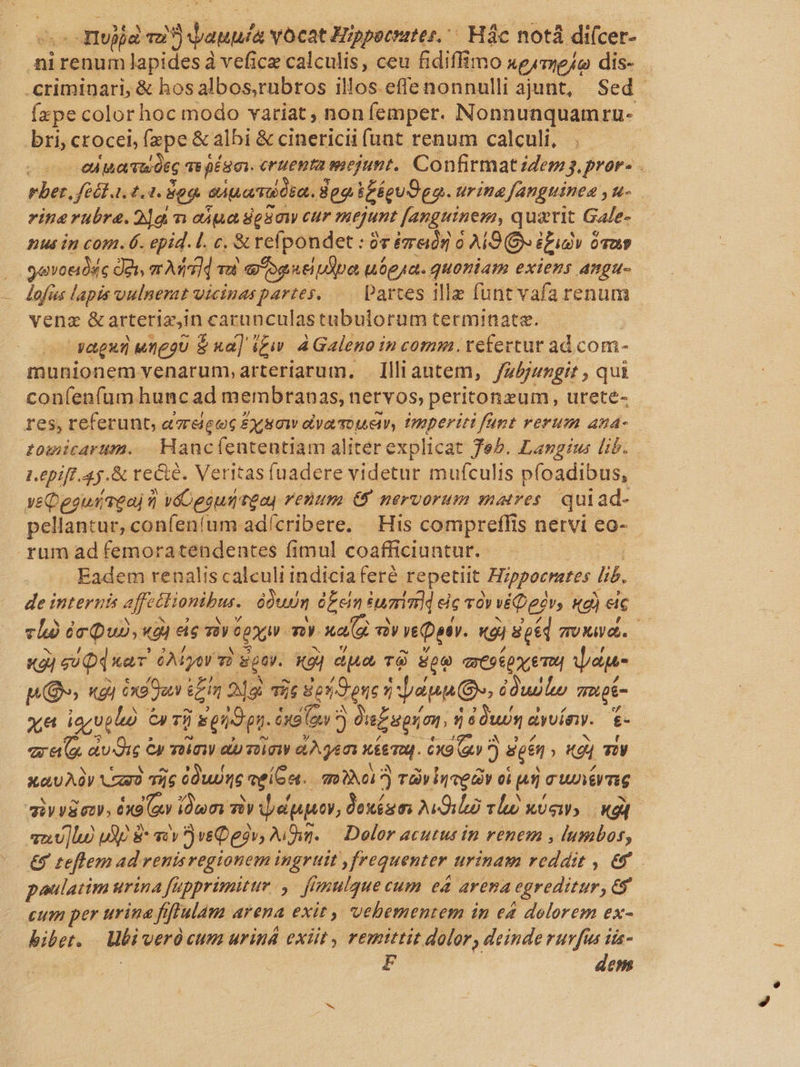 Πυῤῥὰ τὰ ψαμμία vocat Hippocrates. Hâc notâ discer-
ni renum lapides à vesicæ calculis, ceu fidissimo κριτηρίῳ dis-
criminari, & hos albos, rubros illos esse nonnulli ajunt, Sed
sæpe color hoc modo variat, non semper. Nonnunquam ru-
bri, crocei, sæpe & albi & cinericii sunt renum calculi,
αἱματώδες τε ῥέουσι. cruenta mejunt. Confirmat idem 3. pror-
rhet. sect. 1. t. 1. οὖρα αἱματώδεα. οὖρα ἐξέρυθρα. urinæ sanguineæ, u-
rinæ rubræ. Διὰ τι αἷμα οὐροῦσιν cur mejunt sanguinem, quærit Gale-
nus in com. 6. epid. l. c. & respondet : ὅτ ἐπειδὴ ὁ λίθος ἐξιὼν ὅπως
γωνοειδής ὅτι, πλήττει τὰ παρακείμενα μόρια. quoniam exiens angu-
losus lapis vulnerat vicinas partes. Partes illæ sunt vasa renum
venæ & arteriæ, in carunculas tubulorum terminatæ.
ναρκὴ μηροῦ ὁ κατ' ἴξιν à Galeno in comm. refertur ad com-
munionem venarum, arteriarum. Illi autem, subjungit, qui
consensum hunc ad membranas, nervos, peritonæum, urete-
res, referunt, ἀπείρως ἔχουσιν ἀνατομεῖν, imperiti sunt rerum ana-
tomicarum. Hanc sententiam aliter explicat Joh. Langius lib.
1. epist. 45. & rectè. Veritas suadere videtur musculis psoadibus,
νεφρομήτραι ἢ νευρομήτραι renum & nervorum matres qui ad-
pellantur, consensum adscribere. His compressis nervi eo-
rum ad femora tendentes simul coafficiuntur.
Eadem renalis calculi indicia ferè repetiit Hippocrates lib.
de internis affectionibus. ὀδύνη ὀξείη ἐμπίπτει εἰς τὸν νέφρὸν, καὶ εἰς
τὴν ὀσφὺν, καὶ εἰς τὸν ὄρχιν τὸν κατὰ τὸν νεφρόν. καὶ οὐρέει πυκινά.
καὶ στύφει κατ' ὀλίγον τὸ οὖρον. καὶ ἅμα τῷ οὔρῳ προέρχεται ψάμ-
μος, καὶ ὁκόταν ἐξίῃ διὰ τῆς οὐρήθρης ἡ ψάμμος, ὀδύνην παρέ-
χει ἰσχυρὴν ἐν τῇ οὐρήθρῃ. ὁκόταν δὲ διεξουρήσῃ, ἡ ὀδύνη ἀνυίσιν. ἔ-
πειτα αὖθις ἐν τοῖσιν αὐτοῖσιν ἀλγέσι κέεται. ὁκόταν δὲ οὐρέῃ, καὶ τὸν
καυλὸν ὑπὸ τῆς ὀδύνης τρίβει. πολλοὶ δὲ τῶν ἰητρῶν οἱ μὴ συνιέντες
τὴν νοῦσον, ὁκόταν ἴδωσι τὸν ψάμμον, δοκέουσι λιθιῆν τὴν κύστιν, καὶ
ταύτην μὲν οὐ τὸν δὲ νεφρὸν, λιθιῇ. Dolor acutus in renem, lumbos,
& testem ad renis regionem ingruit, frequenter urinam reddit, &
paulatim urina supprimitur, simulque cum eâ arena egreditur, &
cum per urinæ fistulam arena exit, vehementem in eâ dolorem ex-
hibet. Ubi verò cum urinâ exiit, remittit dolor, deinde rursus iis-
F dem